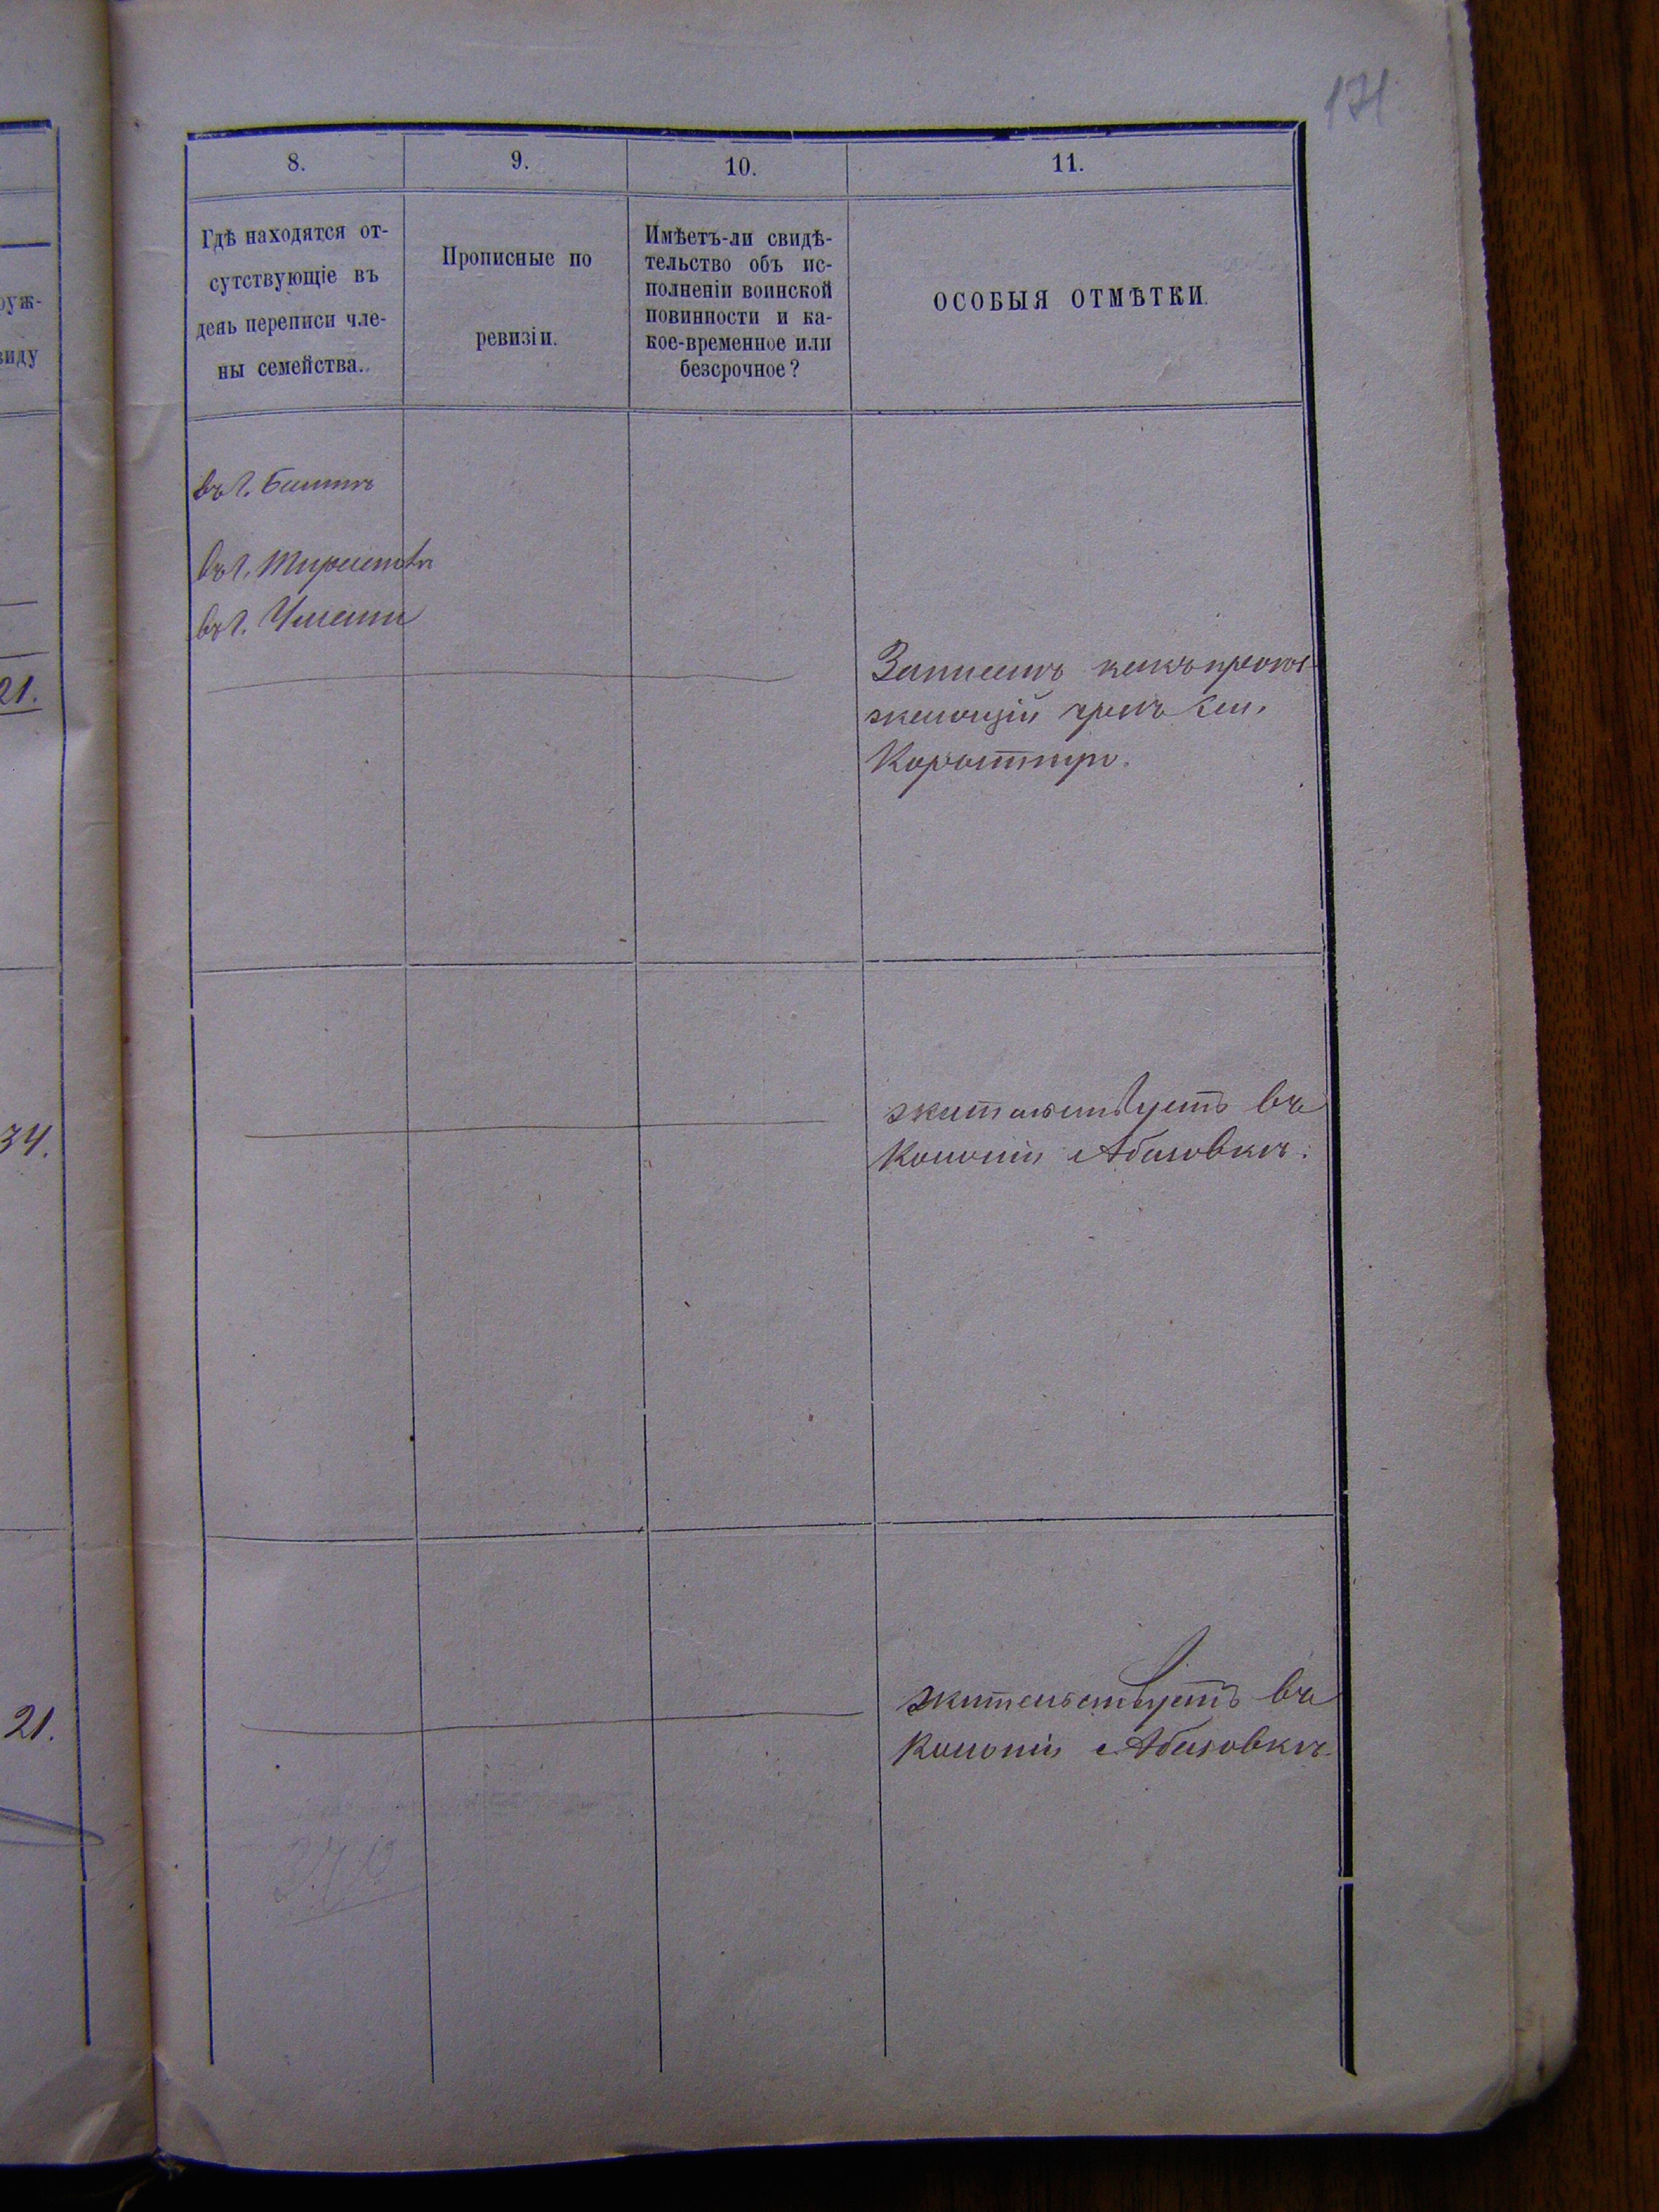 171
8.
9.
10.
11.
Гдѣ находятся от-
сутствующіе въ
день переписи чле-
ны семейства.
Прописные по
ревизіи.
Имѣетъ-ли свидѣ-
тельство объ ис-
полненіи воинской
повинности и ка-
кое-временное или
безсрочное?
ОСОБЫЯ ОТМѢТКИ.
руж-
виду
въ г.
въ г.
въ г. Умани
21.
Записанъ какъ
34.
жительствуетъ въ
Колоніи Абазовкѣ.
21.
жительствуетъ въ
Колоніи Абазовкѣ.